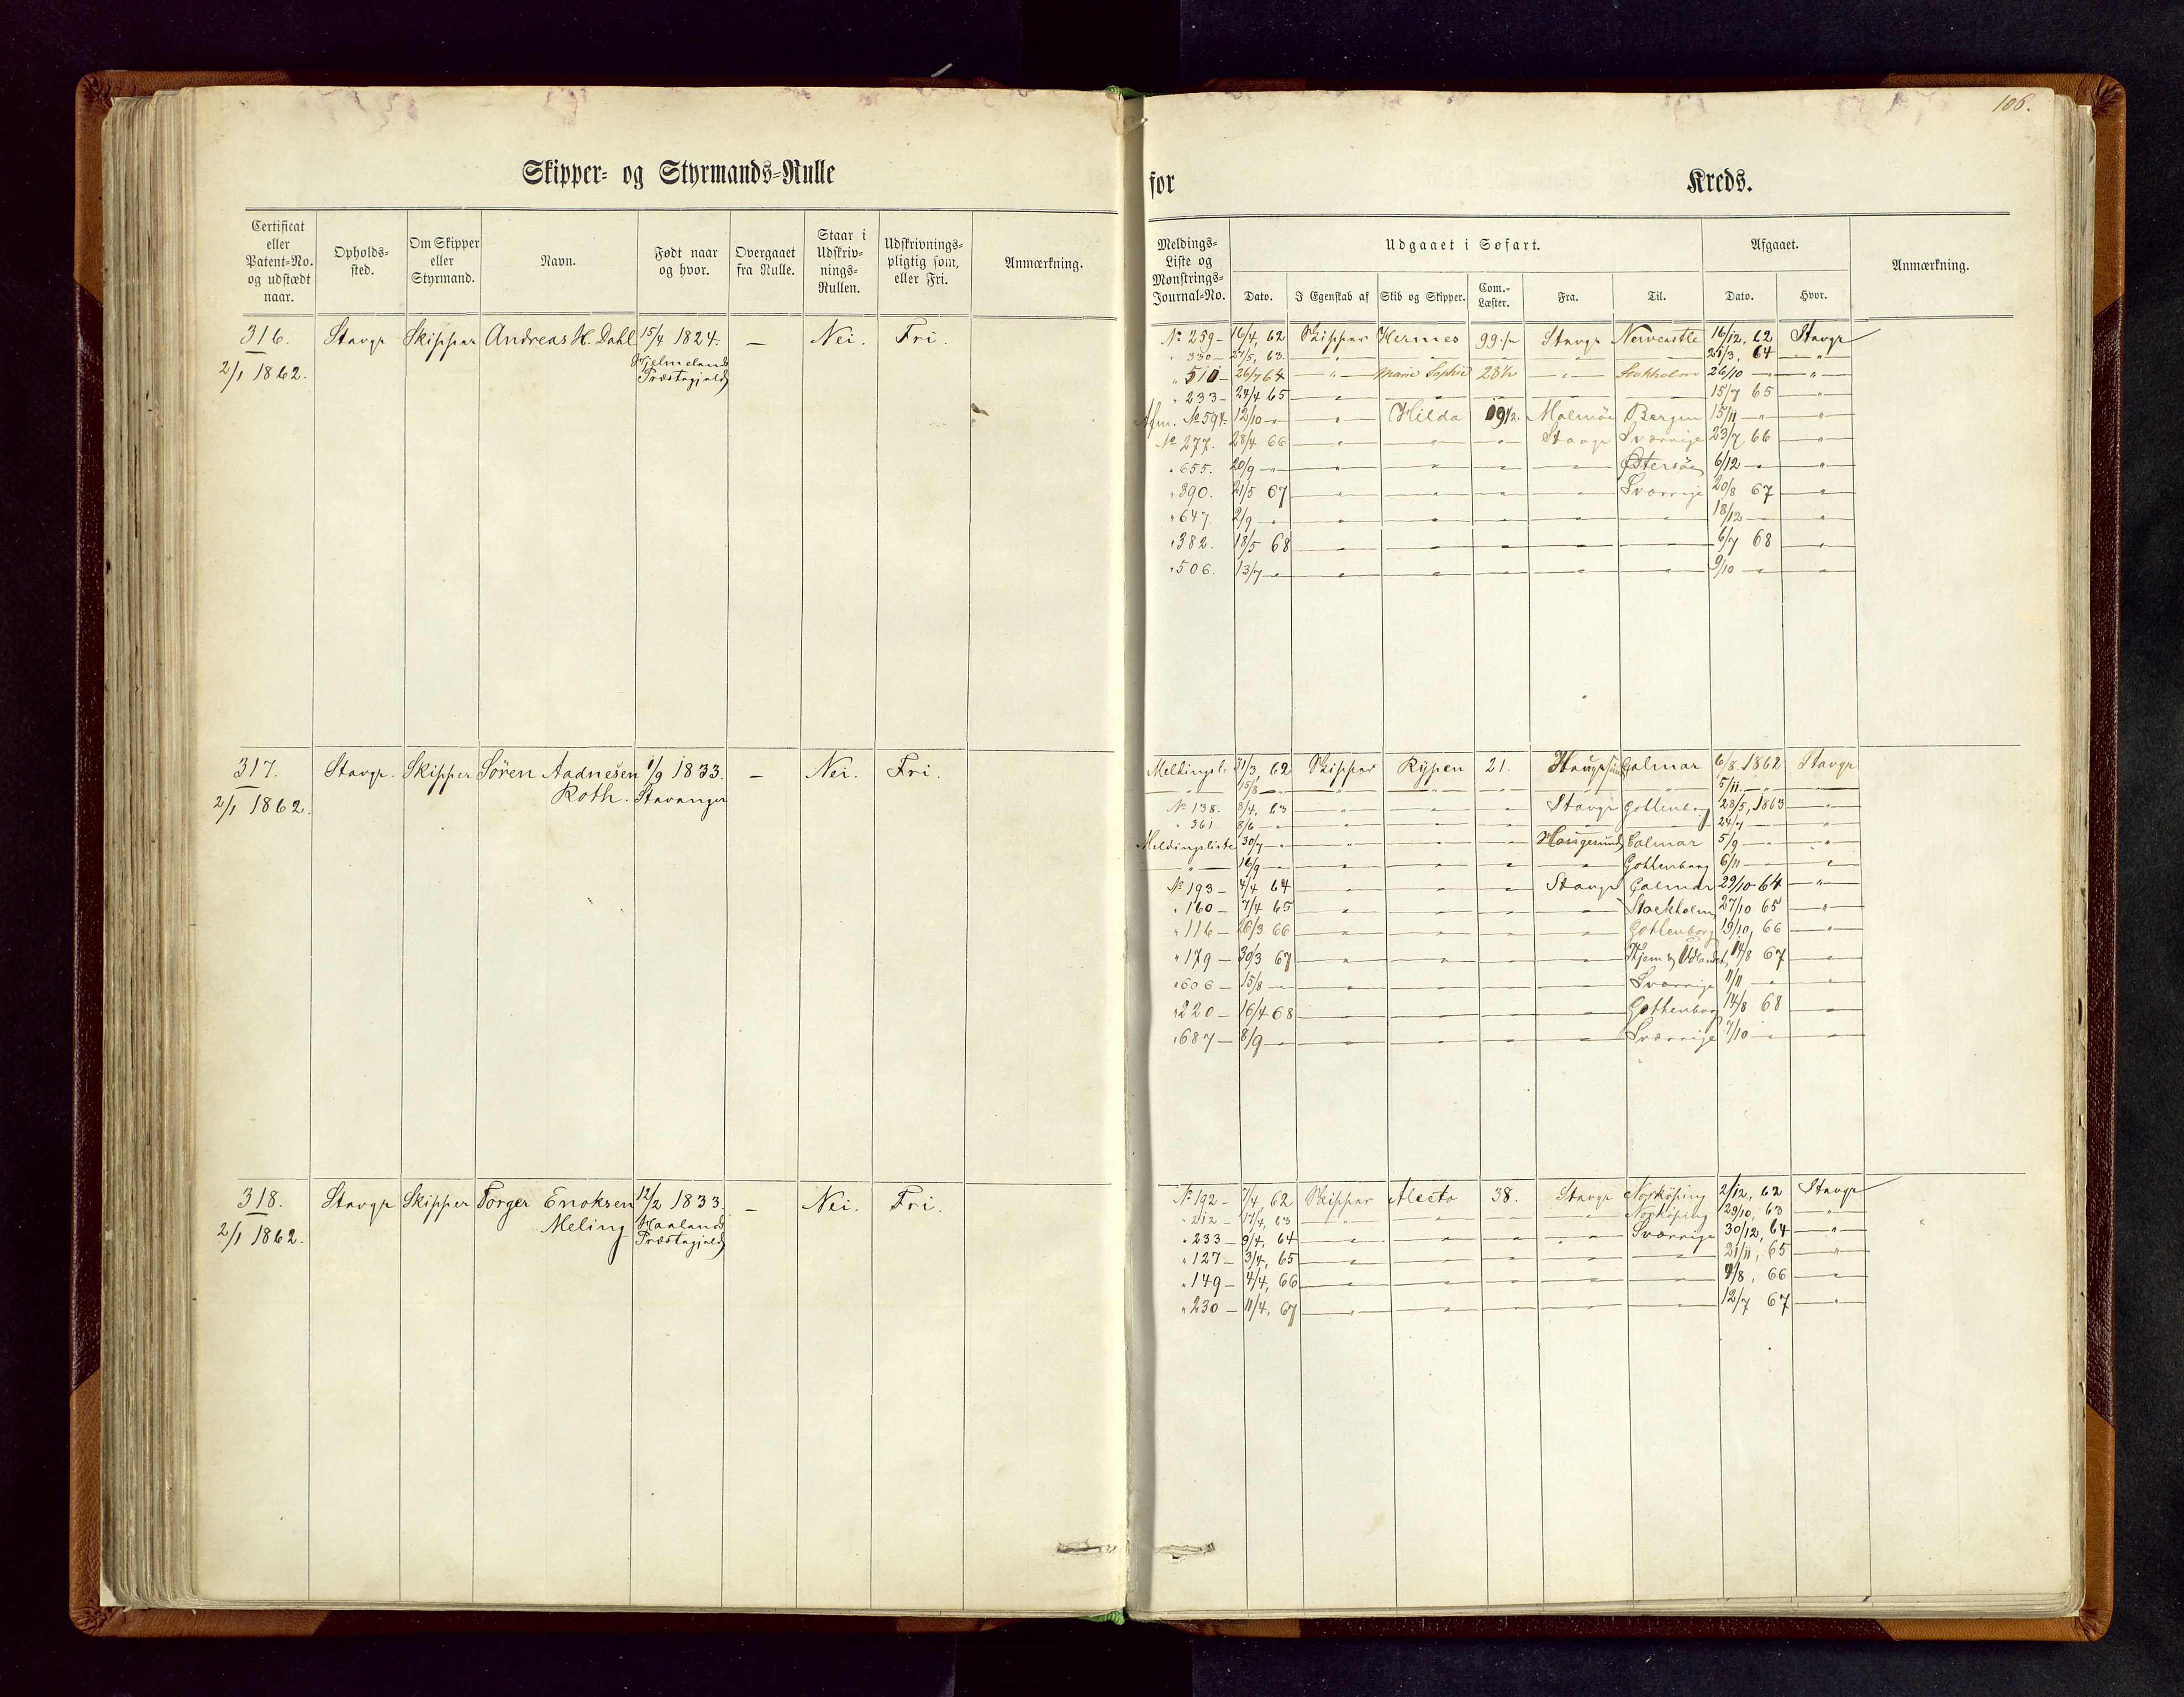 106.
Skipper- og Styrmands-Rulle for Kreds.
Certificat eller Patent-No. og udstædt naar. Opholds-sted. Om Skipper eller Styrmand. Navn. Født naar og hvor. Overgaaet fra Rulle. Staar i Udskriv-nings-Rullen. Udskrivnings-pligtig som, eller Fri. Anmærkning.
Meldings-Liste og Mønstrings-Journal-No. Udgaaet i Søfart. Afgaaet. Anmærkning.
Dato. I Egenskab af Skib og Skipper. Com.-Læster. Fra. Til. Dato. Hvor.
316. Stavgr Skipper Andreas H. Dahl 15/4 1824. — Nei. Fri.
2/1 1862. Hjelmelands Præstegjeld
No 259 — 16/4, 62 Skipper Hermes 99 Stavgr Newcastle 16/12, 62 Stavgr
" 330 — 27/5, 63. — " — — " — — " — — " — — " — 21/3, 64 — " —
" 510 — 26/7 64 — " — Marie Sophie 28 1/2 — " — Stokholm 26/10 — " — — " —
" 233 — 24/4 65 — " — — " — — " — — " — — " — 15/7 65 — " —
Afm. No 594. 12/10 — " — " — Hilda 19 1/2. Malmöe Bergen 15/11 — " — — " —
No 277. 28/4 66 — " — — " — — " — Stavgr Sverrige 23/7, 66 — " —
" 655. 20/9 — " — — " — — " — — " — — " — Östersöen 6/12 — " — — " —
" 390. 21/5 67 — " — — " — — " — — " — Sverrige 20/8 67 — " —
" 647. 2/9 — " — — " — — " — — " — — " — — " — 18/12 — " — — " —
" 382. 18/5 68 — " — — " — — " — — " — — " — 6/7 68 — " —
" 506. 13/7 — " — — " — — " — — " — — " — — " — 9/10 — " — — " —
317. Stavgr. Skipper Sören Aadnesen 1/9 1833. — Nei. Fri.
2/1 1862. Roth. Stavanger
Meldingsl. 31/3, 62 Skipper Rypen 21. Haugesund Calmar 6/8 1862 Stavgr
— " — 15/8 — " — — " — — " — — " — — " — — " — 5/11 — " — — " —
No 138. 8/4, 63 — " — — " — — " — Stavgr Gottenborg 28/5, 1863 — " —
" 361. 8/6 — " — — " — — " — — " — — " — — " — 24/7 — " — — " —
Meldingsliste 30/7 — " — — " — — " — — " — Haugesund Calmar 5/9 — " — — " —
— " — 16/9 — " — — " — — " — — " — — " — Gottenborg 6/11 — " — — " —
No 193 — 4/4 64 — " — — " — — " — Stavgr Calmar 29/10 64 — " —
" 160 — 7/4 65 — " — — " — — " — — " — Stockholm 27/10 65 — " —
" 116 — 26/3 66 — " — — " — — " — — " — Gottenborg 19/10, 66 — " —
" 179 — 30/3 67 — " — — " — — " — — " — Hjem og Udlandet 14/8 67 — " —
" 606 — 15/8 — " — — " — — " — — " — — " — Sverrige 11/11 — " — — " —
" 220 — 16/4 68 — " — — " — — " — — " — Gottenborg 14/8 68 — " —
" 687 — 8/9 — " — — " — — " — — " — — " — Sverrige 7/10 — " — — " —
318. Stavgr Skipper Torger Enoksen 12/2 1833. — Nei. Fri.
2/1 1862. Meling Haalands Præstegjeld
No 192 — 7/4, 62 Skipper Alecto 38. Stavgr Norköping 2/12, 62 Stavgr
" 212 — 17/4, 63 — " — — " — — " — — " — Norköping 29/10, 63 — " —
" 233 — 9/4, 64 — " — — " — — " — — " — Sverrige 30/12, 64 — " —
" 127 — 3/4, 65 — " — — " — — " — — " — — " — 21/11, 65 — " —
" 149 — 4/4, 66 — " — — " — — " — — " — — " — 4/8, 66 — " —
" 230 — 11/4, 67 — " — — " — — " — — " — — " — 12/7 67 — " —